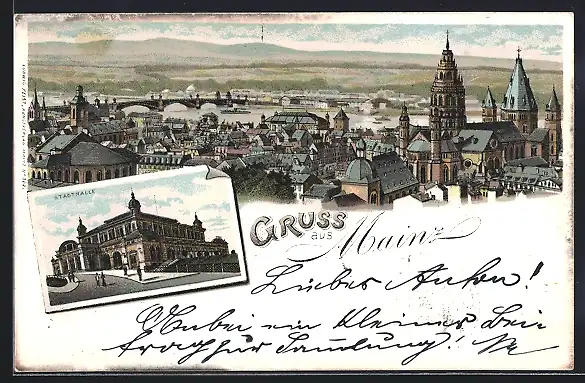 STADTHALLE
GRUSS
aus
Mainz
Lieber Anton!
Anbei ein kleiner Bei
trag zur Sammlung!